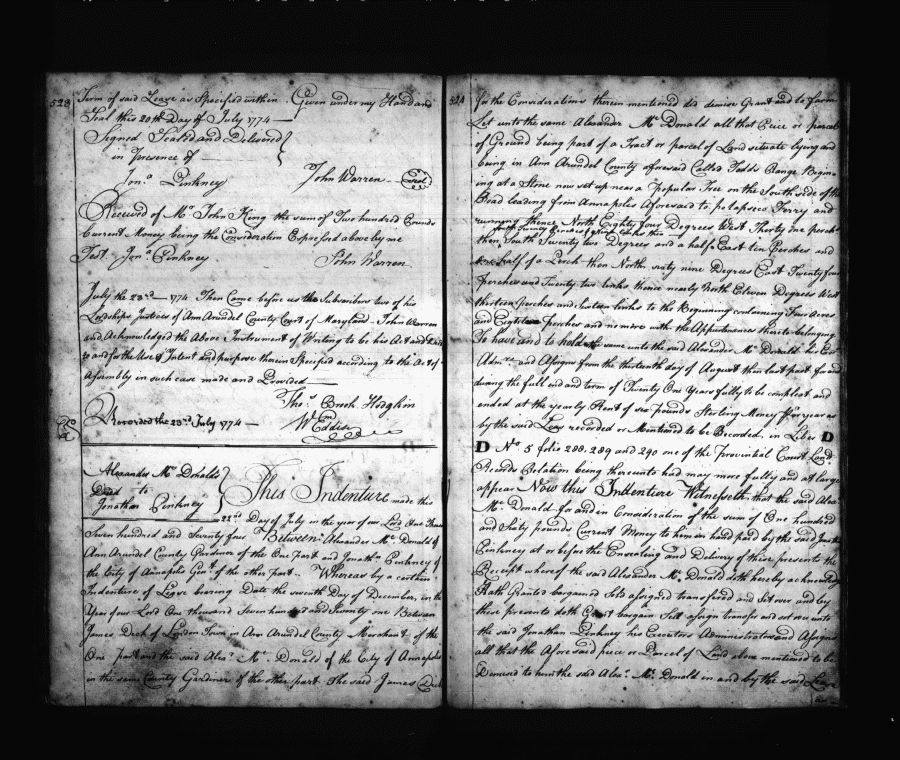 523
Term of said Lease as Specified within Given under my Hand and
Seal this 20th Day of July 1774
Signed Sealed and Delivered
in Presence of
Jona. Pinkney John Warren seal
Received of Mr. John King the sum of Two hundred Pounds
Current Money being the Consideration Expressed above by me
Test. Jona. Pinkney John Warren
July the 23rd 1774 Then Came before us the Subscribers two of his
Lordships Justices of Ann Arundel County Court of Maryland John Warren
and Acknowledged the Above Instrument of Writing to be his Act and
and for the Use & Intent and purpose therein Specified according to the Act of
Assembly in such case made and Provided
Thos. Brook Hodgkin
Recorded the 23rd July 1774 Wm Eddis
Alexander Mc. Donalds
Deed to
Jonathan Pinkney
This Indenture made this
22nd Day of July in the year of our Lord One Thousand
Seven hundred and Seventy four Between Alexander Mc. Donald of
Ann Arundel County Gardiner of the One Part and Jonathn. Pinkney of
the City of Annapolis Gent. of the other part. Whereas by a certain
Indenture of Lease bearing Date the seventh Day of December, in the
Year of our Lord One thousand Seven hundred and Seventy one Between
James Dick of London Town in Ann Arundel County Merchant, of the
One part and the said Alexr. Mc. Donald of the City of Annapolis
in the same County Gardiner of the other part The said James Dick
524
for the Considerations therein mentioned did demise Grant and to farm
Let unto the same Alexander Mc Donald all that Peice or parcel
of Ground being part of a Tract or parcel of Land situate lying and
being in Ann Arundel County aforesaid Called Todds Range Begin
ing at a Stone now set up near a popular Tree on the South side of the
Road leading from Annapolis Aforesaid to patapsico Ferry and
running thence North Eighty four Degrees West Thirty one perch
then South Seventy two Degrees and a half East ten Perches and
one half of a Perch then North sixty nine Degrees East Twenty four
perches and Twenty two links thence nearly North Eleven Degrees West
thirteen perches and sixteen links to the Beginning containing Four Acres
and Eighteen perches and no more with the Appurtenances thereto belonging
To have and to hold the same unto the said Alexander Mc. Donald his Exrs
Admrs. and Assigns from the thirteenth day of August then last past for and
during the full end and term of Twenty One Years fully to be compleat and
ended at the yearly Rent of six pounds Sterling Money pr. year as
by the said Lease recorded or Mentioned to be Recorded, in Liber D
D No. 5 folio 288. 289 and 290 one of the Provincial Court Land
Records Relation being thereunto had may more fully and at large
appear Now this Indenture Witnesseth, that the said Alexr.
Mc. Donald for and in Consideration of the sum of One hundred
and Sixty pounds Current Money to him in hand paid by the said Jonathn
Pinkney at or before the Ensealing and Delivery of these presents the
Receipt whereof the said Alexander Mc. Donald doth hereby acknowledge
Hath Granted bargained Sold assigned transferred and Set over and by
these presents doth Grant bargain Sell assign transfer and set over unto
the said Jonathan Pinkney his Executors Administrators and Assigns
all that the Aforesaid piece or Parcel of Land above mentioned to be
Demised to him the said Alexr. Mc. Donald in and by the said Lease